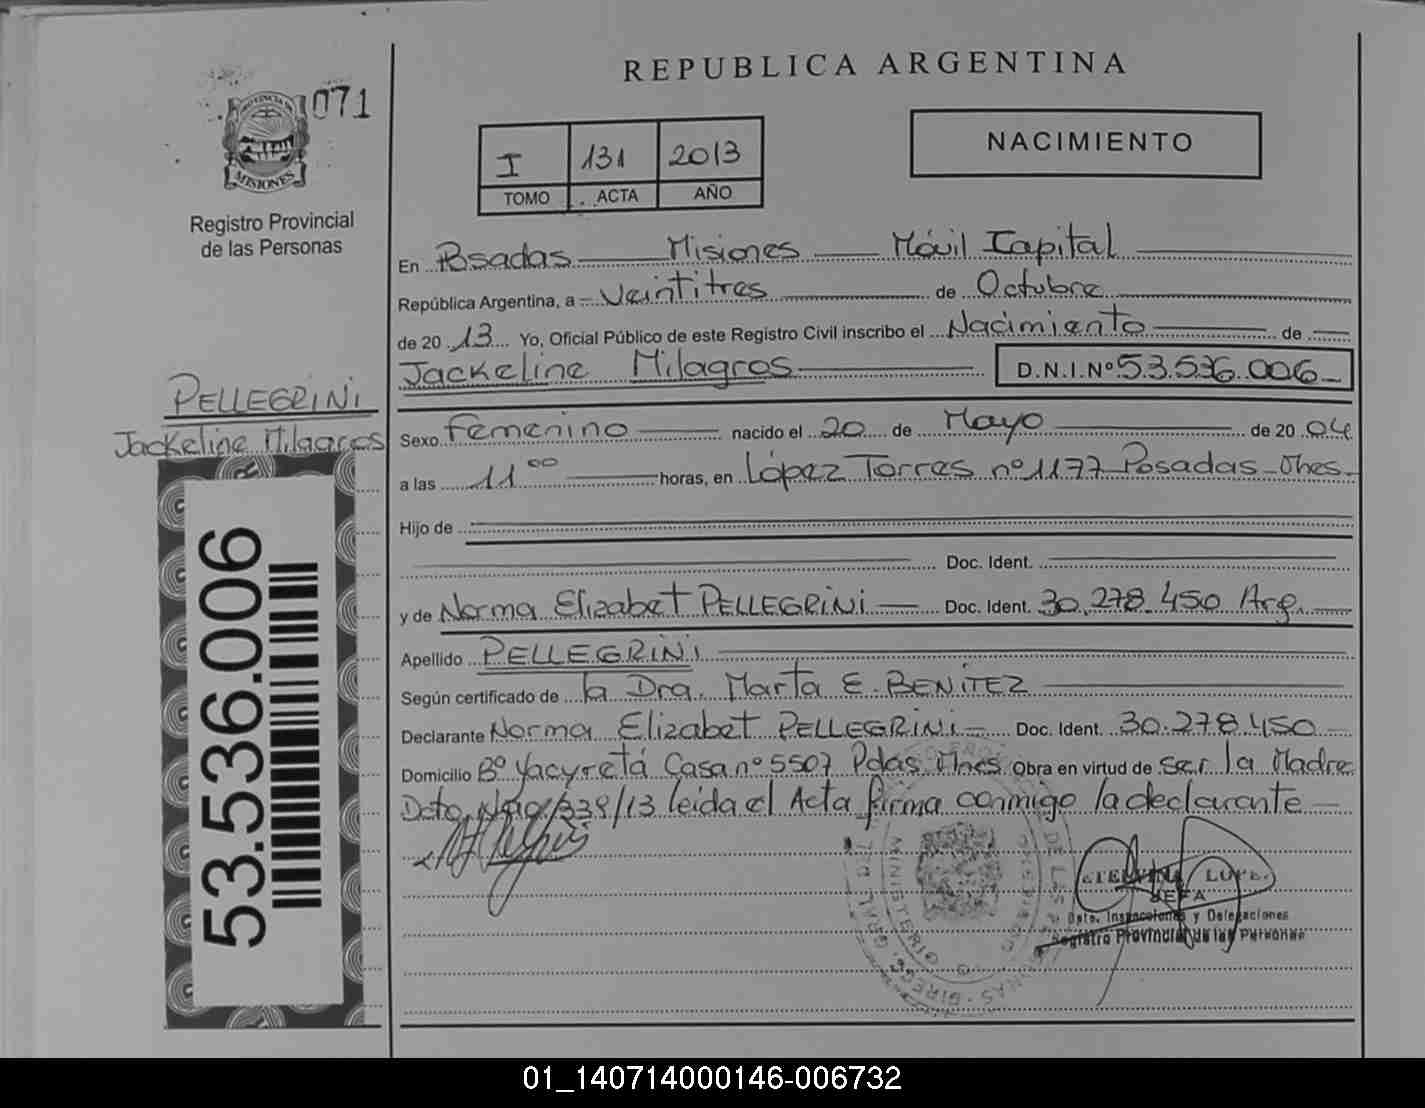 REPUBLICA ARGENTINA
071
PROVINCIA DE
MISIONES
Registro Provincial
de las Personas
I 131 2013
TOMO ACTA AÑO
NACIMIENTO
En Posadas Misiones Móvil Capital
República Argentina, a Veintitres de Octubre
de 2013 Yo, Oficial Público de este Registro Civil inscribo el Nacimiento de
Jackeline Milagros D.N.I.Nº 53.536.006
PELLEGRINI
Jackeline Milagros
Sexo Femenino nacido el 20 de Mayo de 2004
a las 11 00 horas, en López Torres nº 1177 Posadas Mnes.
Hijo de
Doc. Ident.
y de Norma Elizabet PELLEGRINI Doc. Ident. 30.278.450 Arg.
Apellido PELLEGRINI
Según certificado de la Dra. Marta E. BENITEZ
Declarante Norma Elizabet PELLEGRINI Doc. Ident. 30.278.450
Domicilio Bº Yacyretá Casa nº 5507 Pdas Mnes Obra en virtud de ser la Madre
Dcto. 339/13 leida el Acta firma conmigo la declarante
53.536.006
MINISTERIO
JEFA
Dpto. Inspecciones y Delegaciones
Registro Provincial de las Personas
01_140714000146-006732